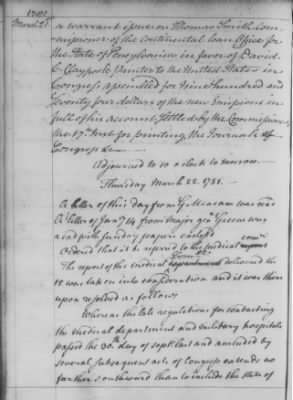 1781
March 21.
a warrant issue on Thomas Smith com
missioner of the continental loan Office for
the State of Pensylvania in favor of David
C. Claypole Printer to the United States in
Congress assembled for Nine hundred and
seventy four dollars of the new Emissions in
full of his account settled by the Commissioners
the 17th. inst for printing the Journals of
Congress &c
Adjourned to 10 o clock to morrow.
Thursday March 22. 1781.
A letter of this day from was
A letter of Jany 14 from Major gen Greene was
read with sundry papers enclosed
Ordered that it be referred to the medical comee
The report of the medical committee delivered the
15 was taken into consideration and it was there
upon resolved as follows
Whereas the late regulations for conducting
the medical department and military hospitals
passed the 30th day of Septr last and amended by
several subsequent acts of Congress extends no
farther southward than to include the state of